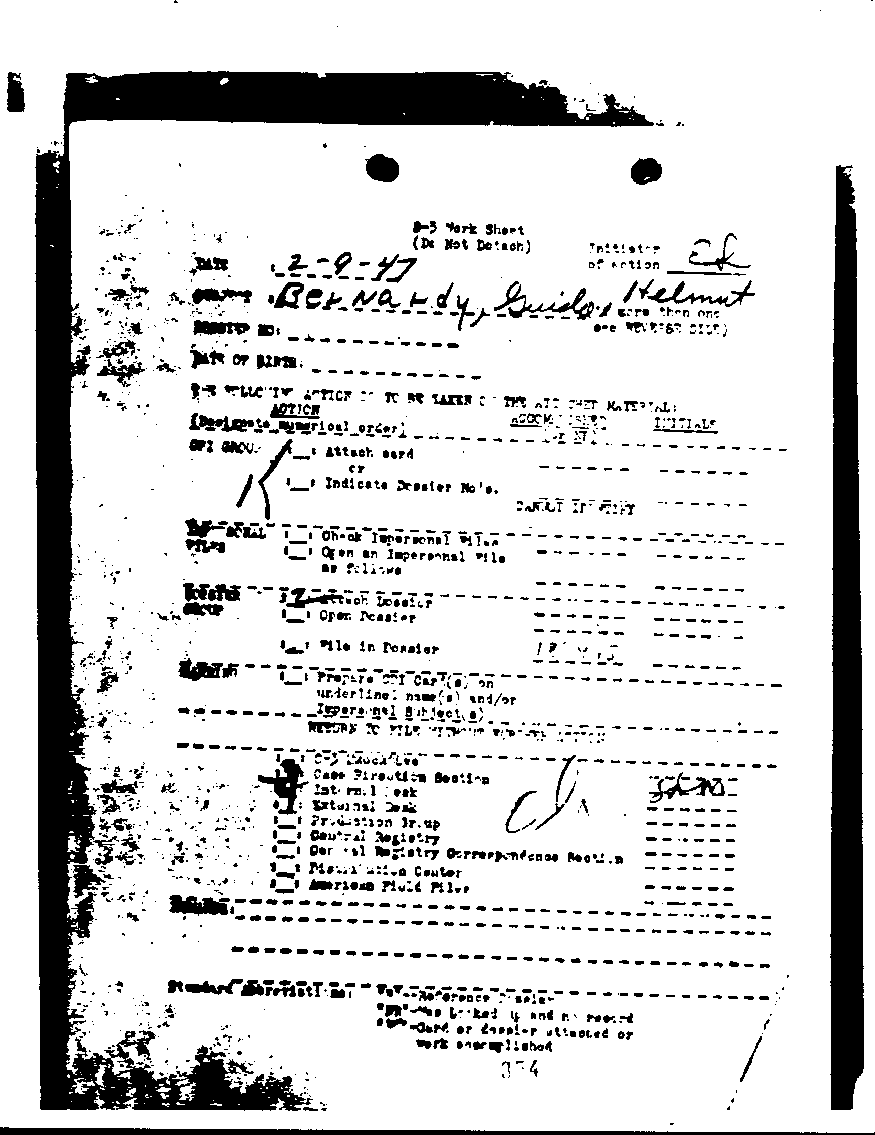 Work Sheet
(Do Not Detach)
Initiator
of Action
DATE : 2-9-47
: Bernardy, Guido, Helmut
more than one
see REVERSE SIDE)
DOSSIER NO:
DATE OF BIRTH:
THE FOLLOWING ACTION IS TO BE TAKEN ON THE ATTACHED MATERIAL:
ACTION
(Designate numerical order)
ACCOMPLISHED
INITIALS
CPI GROUP :__: Attach card
or
:__: Indicate Dossier No's.
CANNOT IDENTIFY
FILES
:__: Check Impersonal Files
:__: Open an Impersonal File
as follows
DOSSIER
GROUP
Attach Dossier
:__: Open Dossier
:__: File in Dossier
:__: Prepare CPI Card(s) on
underlined name(s) and/or
Impersonal Subject(s)
RETURN TO FILE WITHOUT FURTHER ACTION
Case Direction Section
Internal Desk
External Desk
:__: Production Group
:__: Central Registry
:__: Central Registry Correspondence Section
:__: Distribution Center
:__: American Field Files
Standard Abbreviations:
-Reference Dossier
"NR"-Was Looked up and no record
-Card or dossier attached or
work accomplished